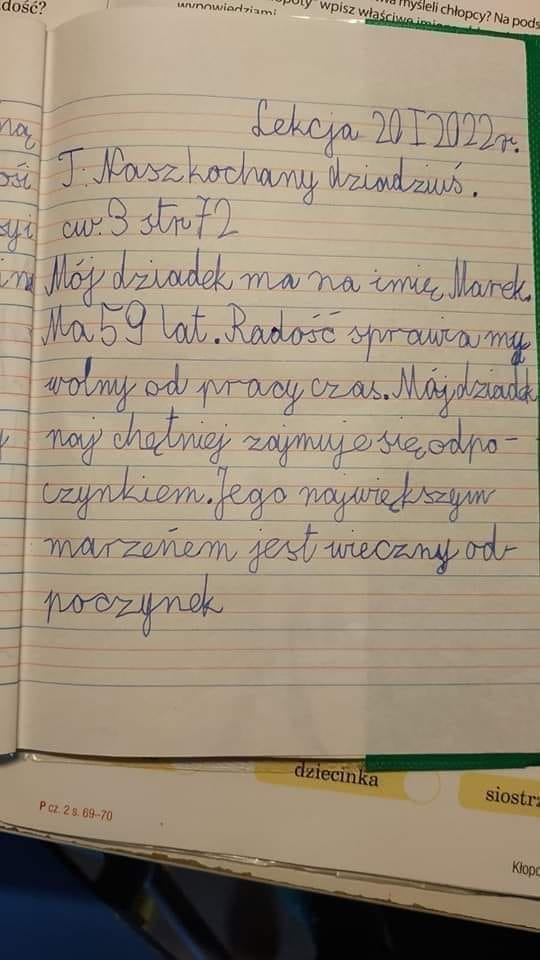 dość?
wypowiedziami
myśleli chłopcy? Na pods
wpisz właściwe
ną
ości
syi
Lekcja 20 I 2022r.
T: Nasz kochany dziadziuś.
ćw. 3 str 72
Mój dziadek ma na imię Marek.
Ma 59 lat. Radość sprawia my
wolny od pracy czas. Mój dziadek
naj chętniej zajmuje się odpo-
czynkiem. Jego największym
marzeńem jest wieczny od-
poczynek
dziecinka
siostrz
P cz. 2 s. 69–70
Kłopo